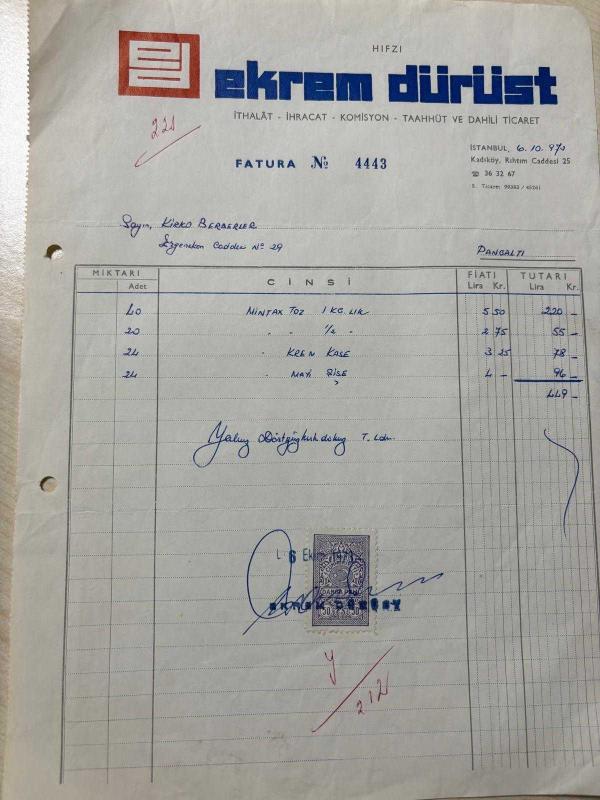 HIFZI
ekrem dürüst
İTHALÂT - İHRACAT - KOMİSYON - TAAHHÜT VE DAHİLİ TİCARET
221
FATURA № 4443
İSTANBUL, 6.10.970
Kadıköy, Rıhtım Caddesi 25
☎ 36 32 67
S. Ticaret 98383 / 45261
Sayın, KİRKO BERBERLER
Caddesi No 29
PANGALTI
MİKTARI CİNSİ FİATI TUTARI
Adet Lira Kr. Lira Kr.
40 MİNTAX TOZ 1 KG.LIK 5 50 220 -
20 " " 1/2 " 2 75 55 -
24 " KREM KASE 3 25 78 -
24 " MAYİ ŞİŞE 4 - 96 -
449 -
Yalnız Dörtyüzkırkdokuz T. Lira
6 Ekim
DAMGA PULU
ekrem dürüst
Y
212